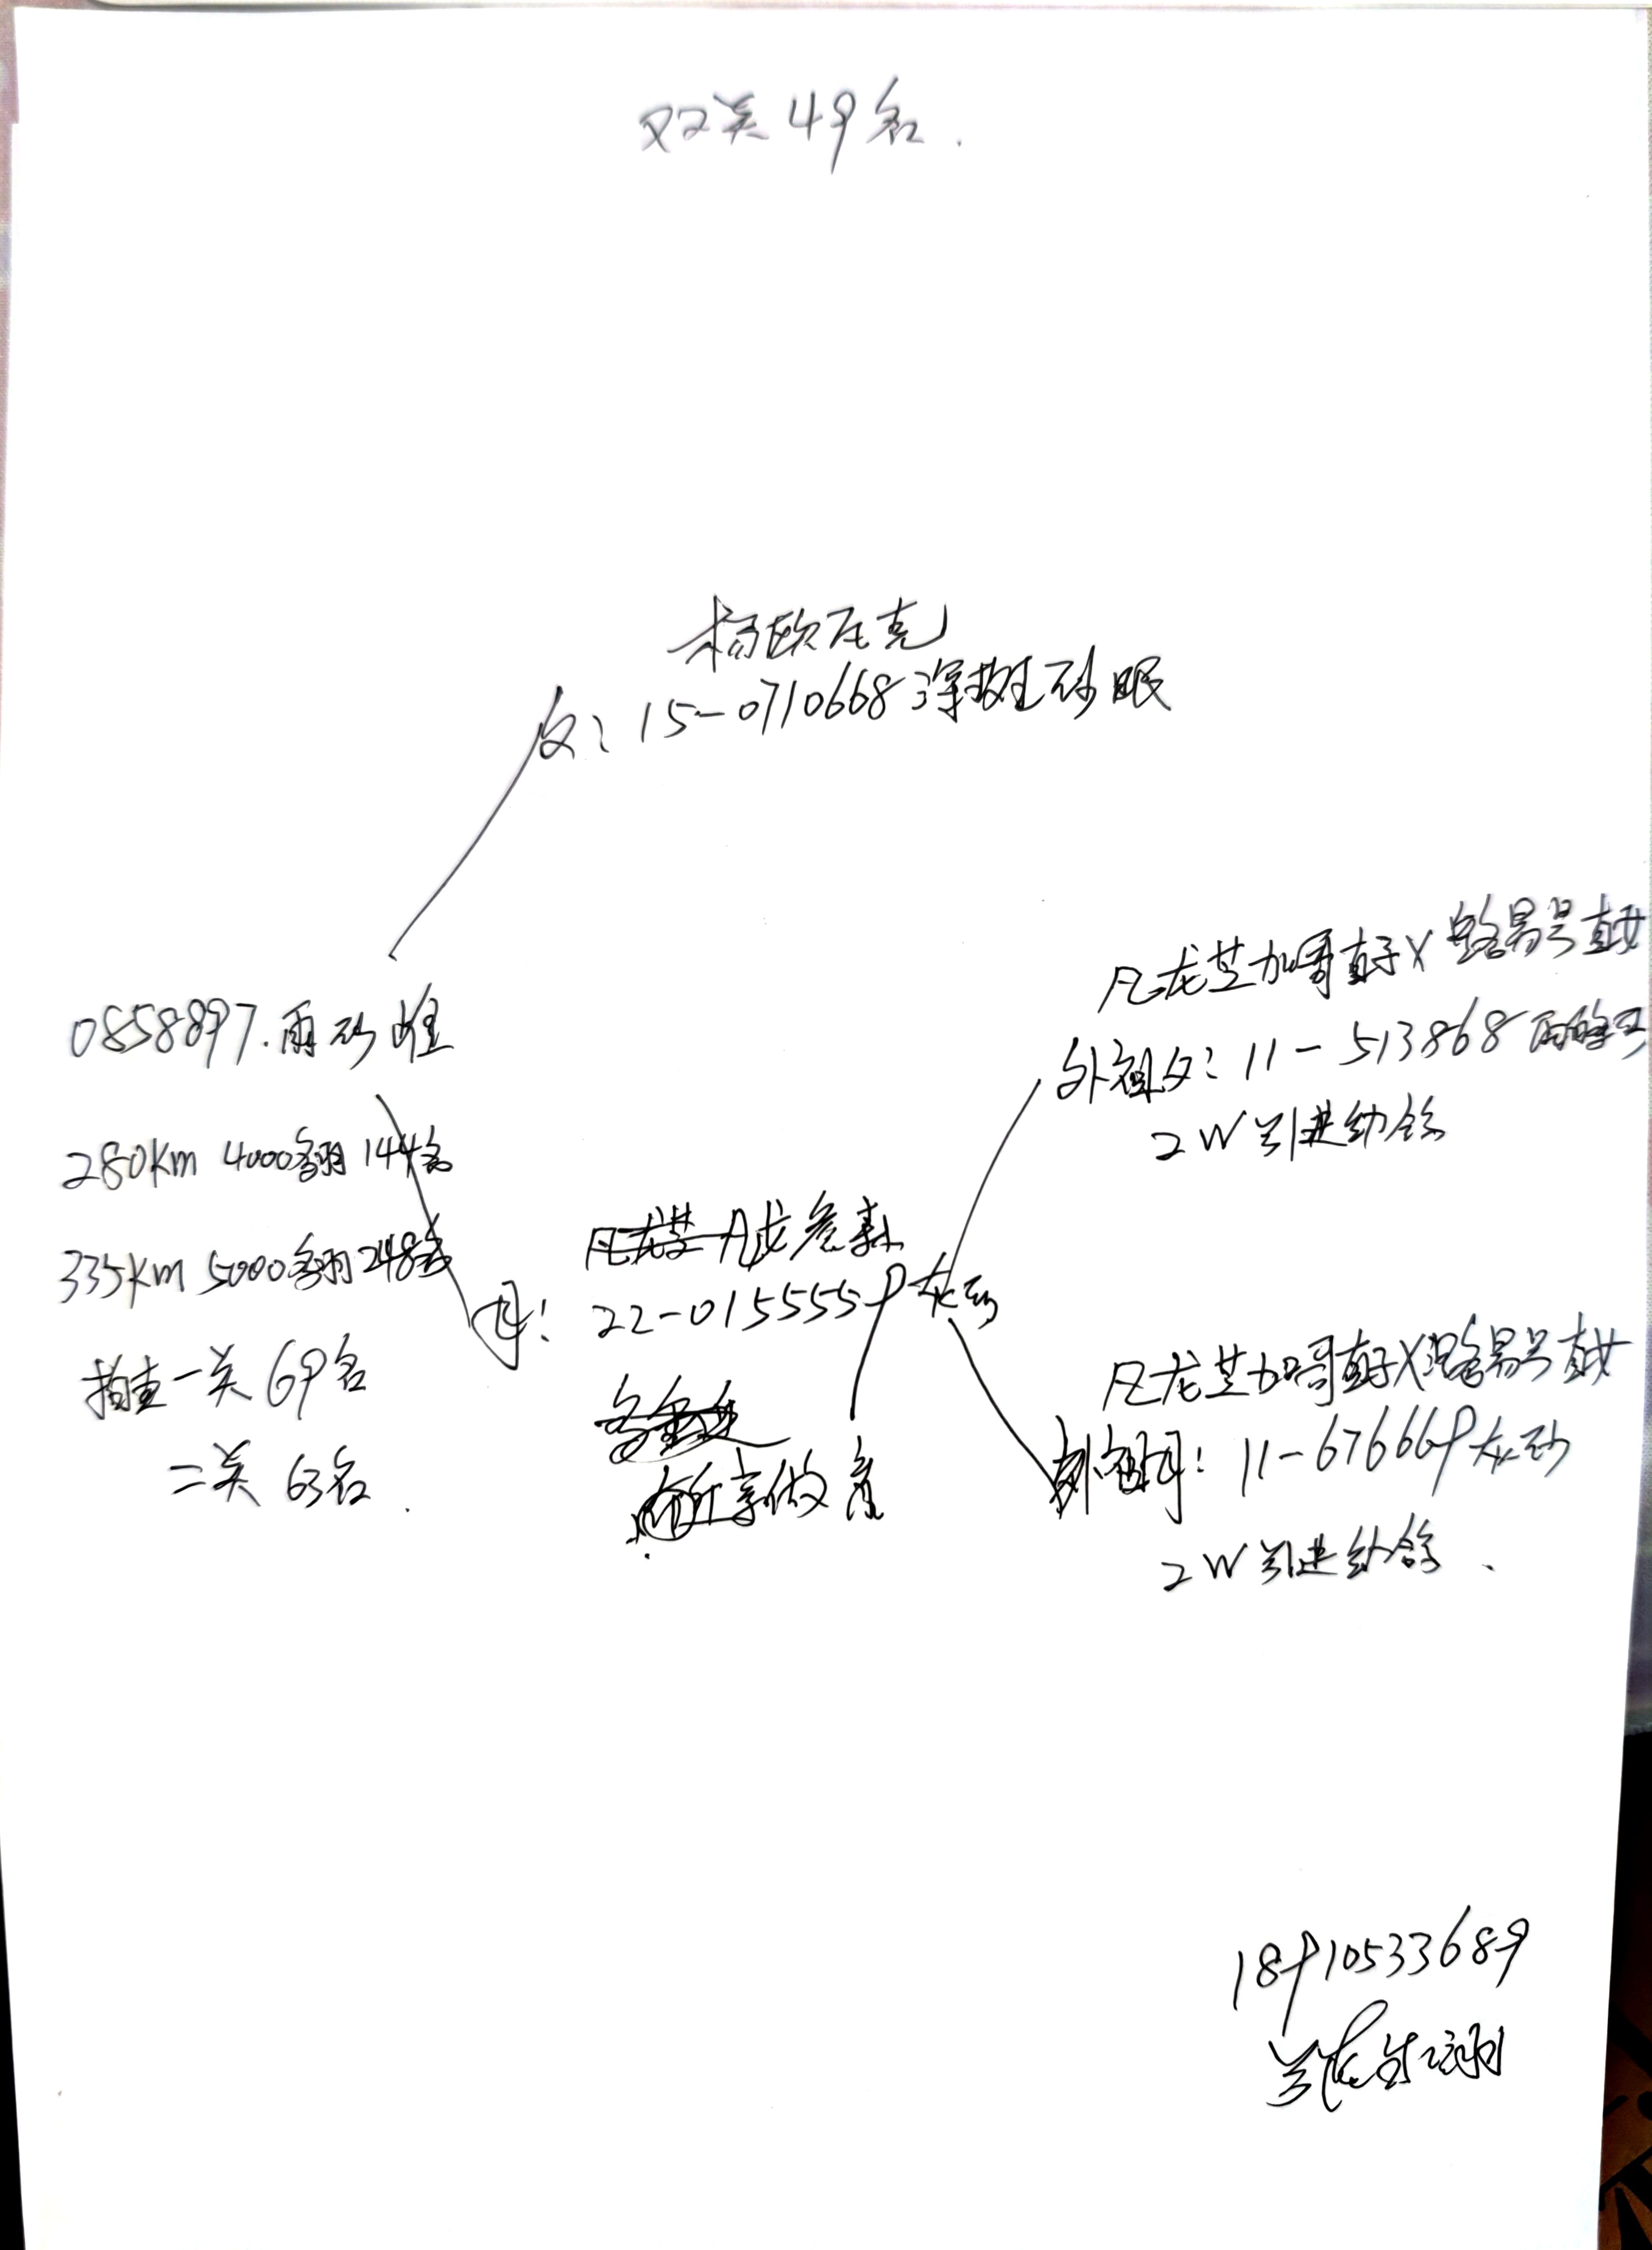 双关49名.
杨欧瓦克
父: 15-0710668深雄砂眼
0858897.雨砂雄
280Km 4000多羽 144名
335Km 5000多羽 248名
指查一关 69名
二关 63名.
凡龙詹森
母: 22-0155559灰
做育
凡龙芝加哥直子X路易号直女
外祖父: 11-513868雨
2W引进幼鸽
凡龙芝加哥直子X路易号直女
外祖母: 11-676669灰砂
2W引进幼鸽.
18910533689